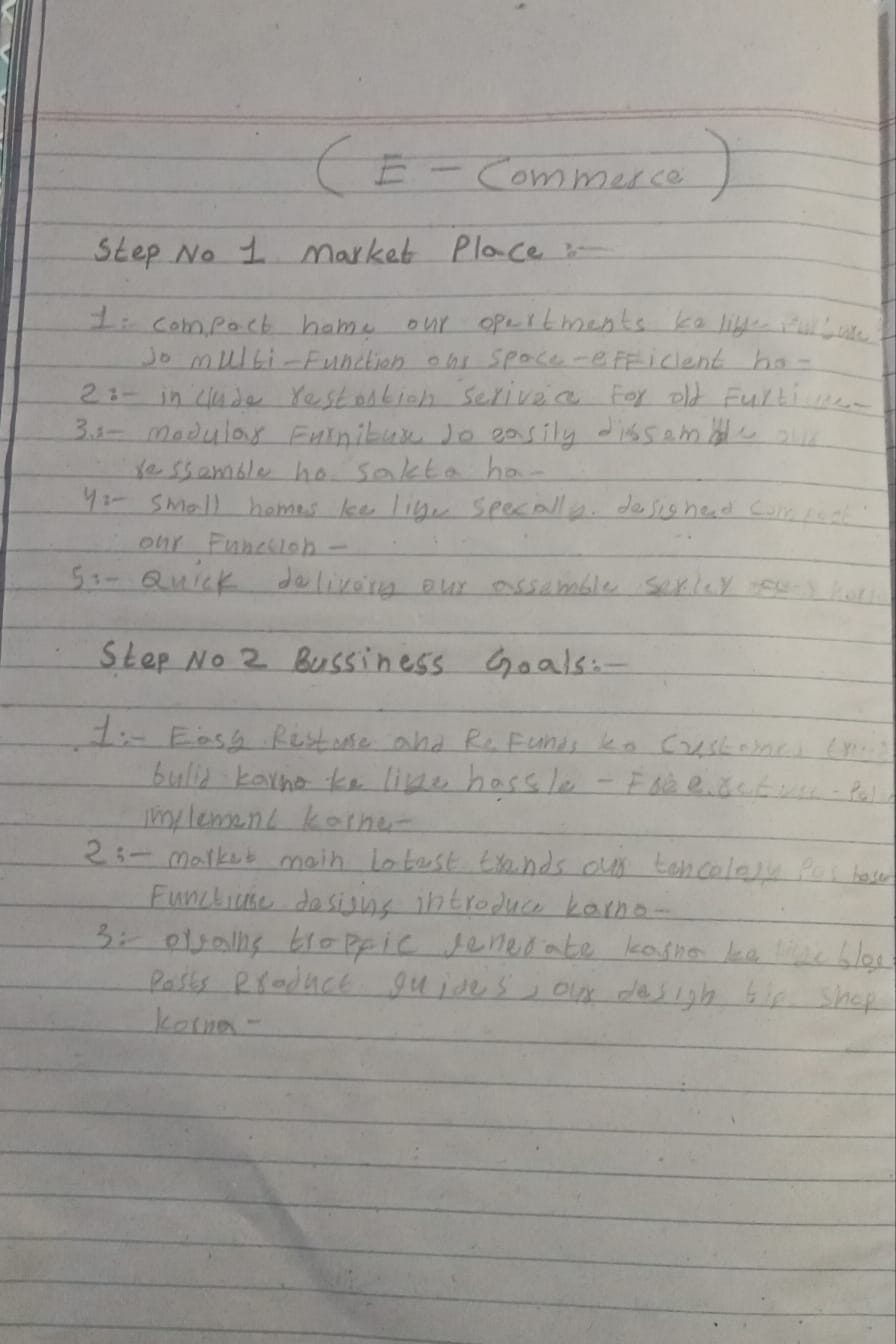 ( E - Commerce )
Step No 1 Market Place :-
1:- compact home our opartments ke liye
jo multi-Function our space-efficient ho -
2:- include restoation serivece For old Furti
3:- modular Furniture jo easily dissemble our
ressamble ho sakta ha -
4:- small homes ke liye specally designed compact
our Function -
5:- Quick delivery our assemble
Step No 2 Bussiness Goals:-
1:- Easy and Refunds ko Customer
bulid karna ke liye hassle - Free
implement karna -
2:- market main latest trands our
designs introduce karna -
3:- generate karna ka blog
Posts Product guides, our design tip shop
karna -